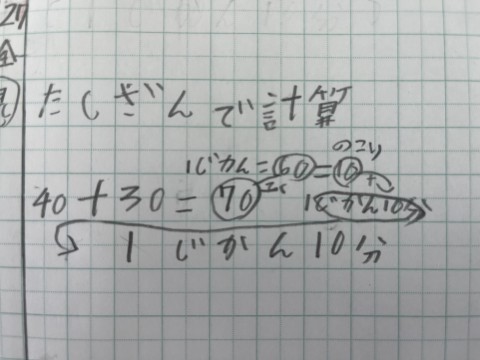 27
金
たしざんで計算
のこり
1じかん=60=10
40+30=70 1じかん10分
1じかん10分